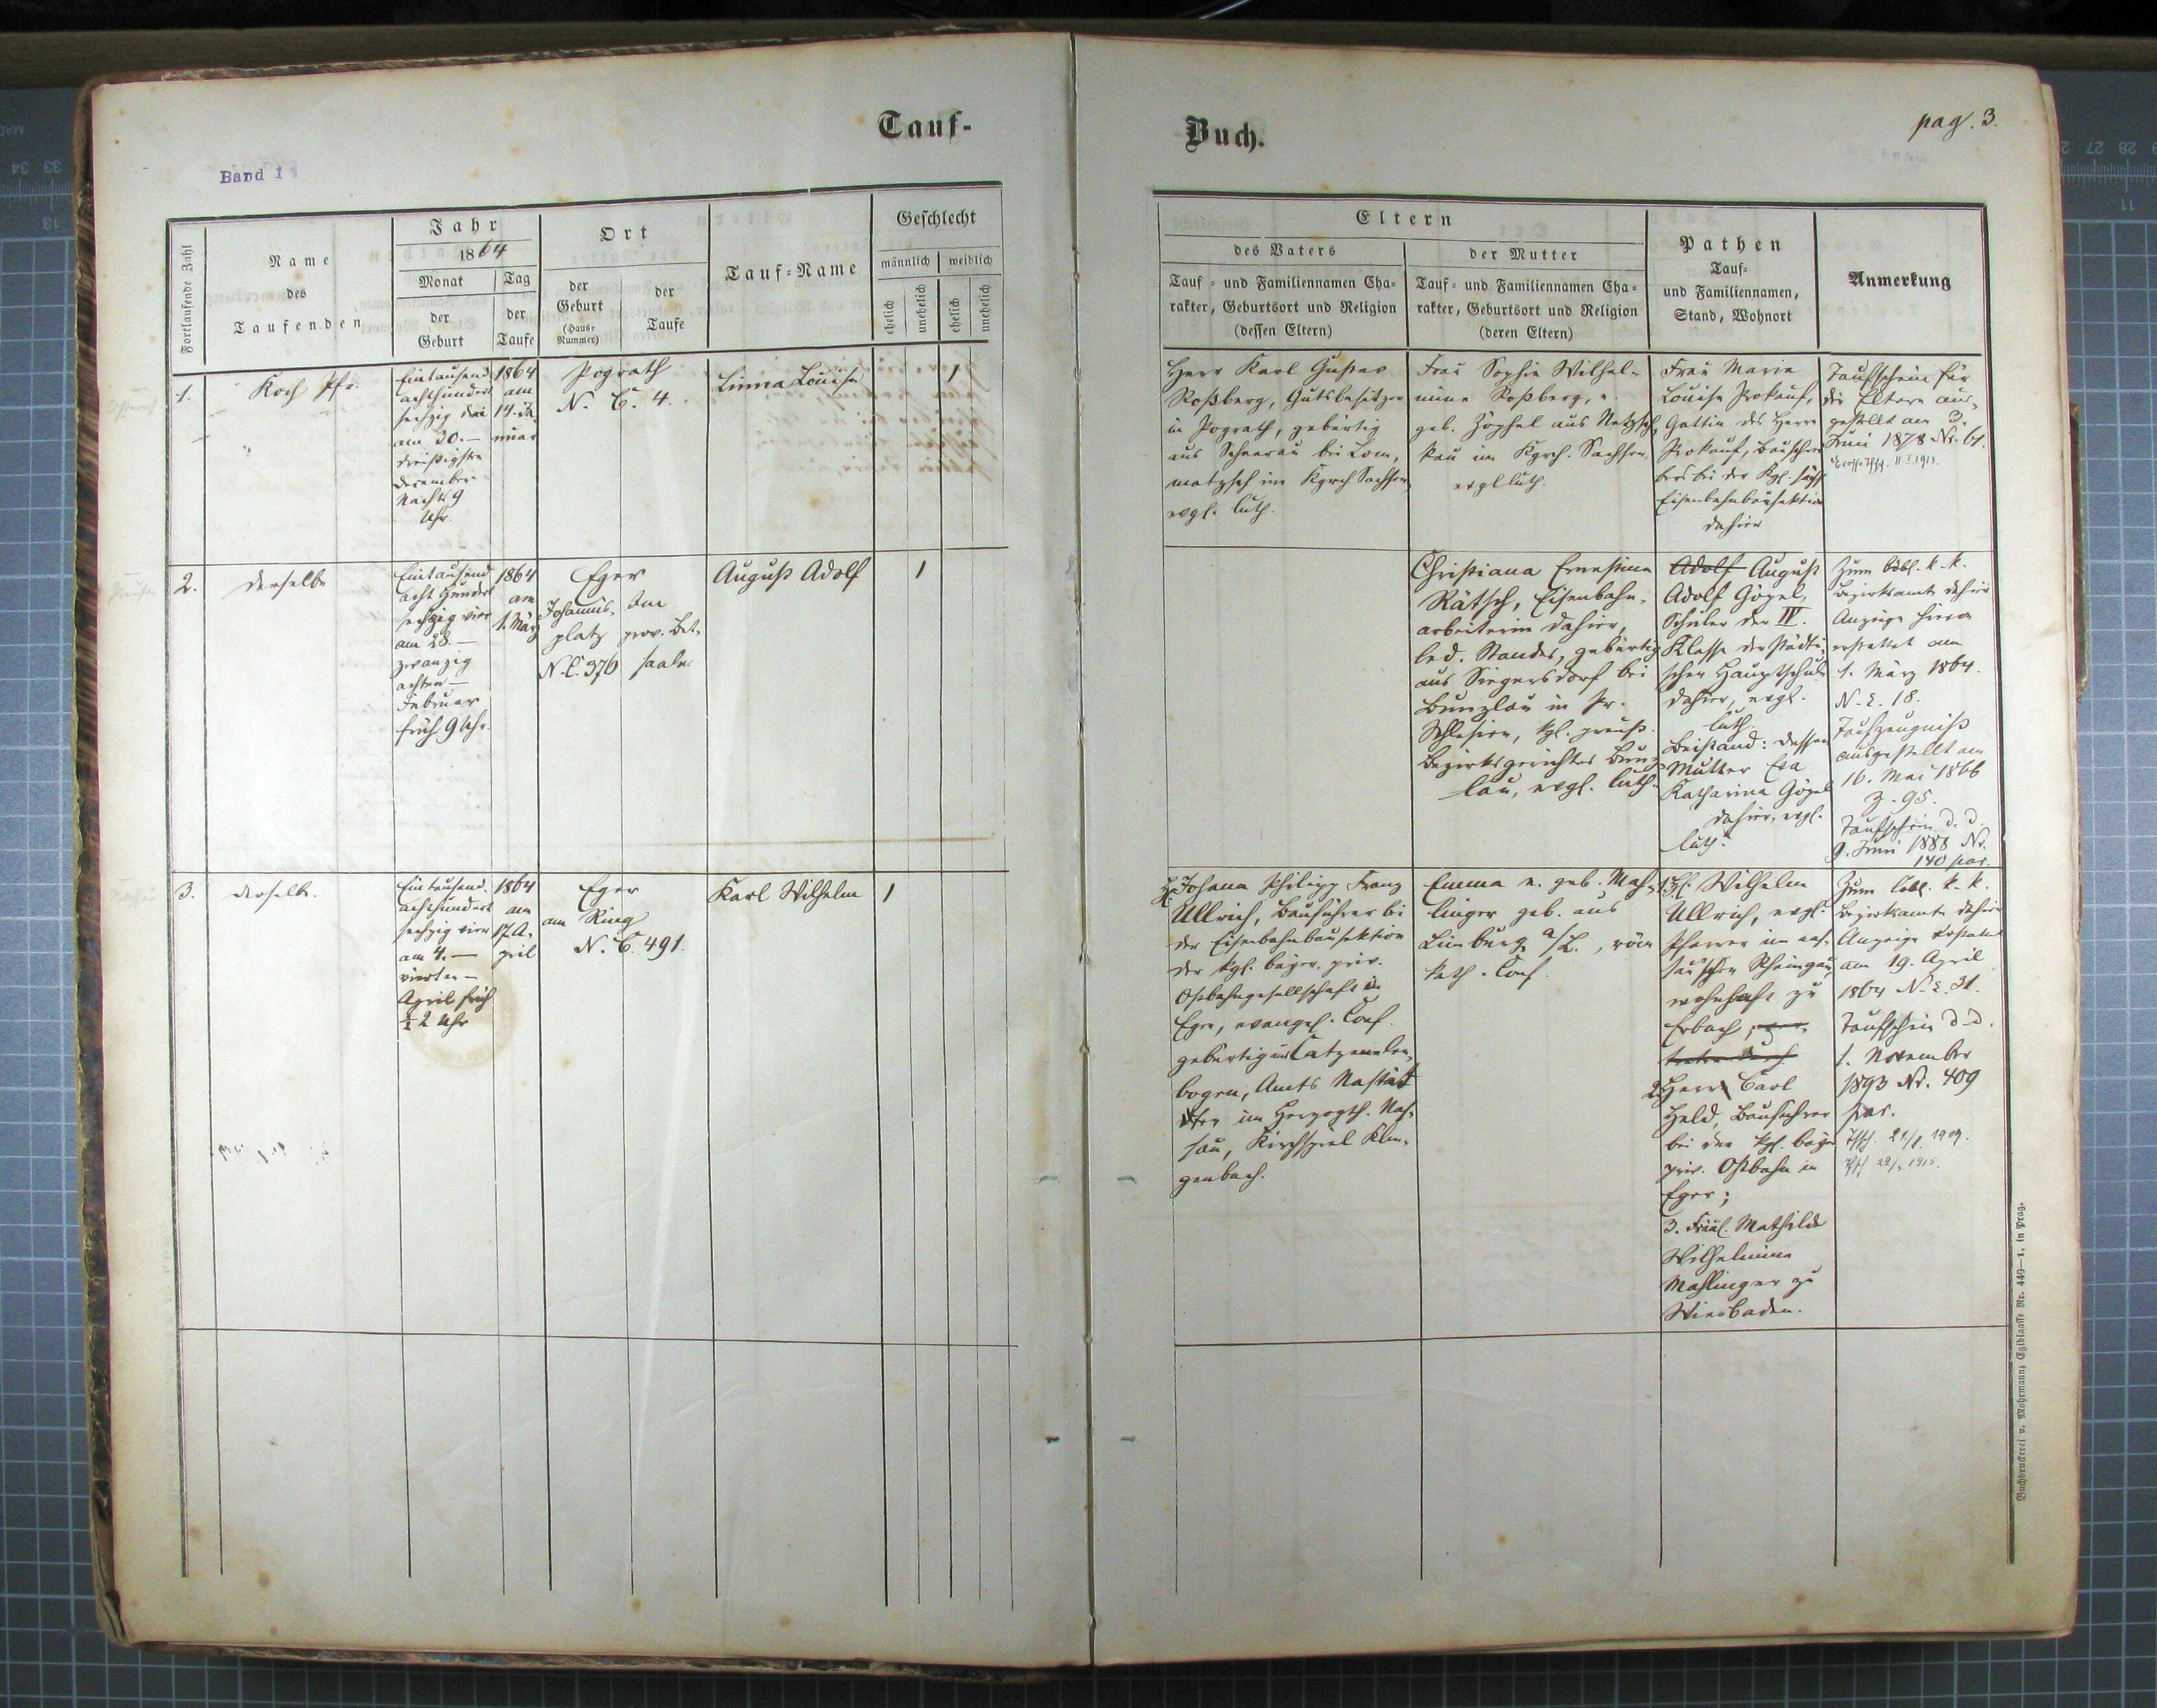 Tauf-
Buch.
pag. 3.
Band 1
Fortlaufende Zahl
Name
des
Taufenden
Jahr
1864
Monat
der
Geburt
Tag
der
Taufe
Ort
der
Geburt
(Haus-
Nummer)
der
Taufe
Tauf-Name
Geschlecht
männlich
weiblich
ehelich
unehelich
ehelich
unehelich
Eltern
des Vaters
Tauf- und Familiennamen Cha-
rakter, Geburtsort und Religion
(dessen Eltern)
der Mutter
Tauf- und Familiennamen Cha-
rakter, Geburtsort und Religion
(deren Eltern)
Pathen
Tauf-
und Familiennamen,
Stand, Wohnort
Anmerkung
1.
Koch Pfr.
Eintausend
achthundert
sechzig drei
am 30. —
dreißigsten
December
Nachts 9
Uhr.
1864
am
14. Ja-
nuar
Pograth
N. C. 4.
Linna Louise
1
Herr Karl Gustav
Roßberg, Gutsbesitzer
in Pograth, gebürtig
aus Scheerau bei Lom-
matzsch im Kgrch Sachsen
evgl. luth.
Frau Sophie Wilhel-
mine Roßberg,
geb. Zöphel aus Netzsch-
kau im Kgrch. Sachsen,
evgl luth.
Frau Marie
Louise Prokauf,
Gattin des Herrn
Prokauf,
bei der Kgl. sächs
Eisenbahnbausektion
dahier
Taufschein für
die Eltern aus-
gestellt am 3.
Juni 1878 Nr. 61.
2.
derselbe
Eintausend
acht hundert
sechzig vier
am 28. —
zwanzig
achten —
Februar
früh 9 Uhr.
1864
am
1. März
Eger
Johannis-
platz
N. C. 376
Im
prov. Bet-
saale
August Adolf
1
Christiana Ernestina
Rätsch, Eisenbahn-
arbeiterin dahier,
led. Standes, gebürtig
aus Siegersdorf bei
Bunzlau in Pr.
Schlesien, kgl. preuß.
Bezirksgerichtes Bunz-
lau, evgl. luth.
Adolf August
Adolf Gögel,
Schüler der IV.
Klasse der städti-
schen Hauptschule
dahier, evgl.
luth.
Beistand: dessen
Mutter Eva
Katharina Gögel
dahier, evgl.
luth.
Zum löbl. k. k.
Bezirksamte dahier
Anzeige hievon
erstattet am
1. März 1864.
N. E. 18.
Taufzeugniß
ausgestellt am
16. Mai 1866
Z. 95.
Taufschein d. d.
9. Juni 1888 Nr.
140
3.
derselbe.
Eintausend
achthundert
sechzig vier
am 4. —
vierten —
April früh
½ 2 Uhr
1864
am
17. A-
pril
Eger
am Ring
N. C. 491.
Karl Wilhelm
1
Johann Philipp Franz
Ullrich, Bauführer bei
der Eisenbahnbausektion
der kgl. bayer. priv.
Ostbahngesellschaft in
Eger, evangel. Conf.
gebürtig aus Catzenelen-
bogen, Amts Nastät-
ten im Herzogth. Nas-
sau, Kirchspiel Klin-
genbach.
Emma n. geb. Mah-
linger geb. aus
Limburg a/L., röm
kath. Conf.
1. H. Wilhelm
Ullrich, evgl.
Pfarrer im nas-
sauischen Rheingau,
wohnhaft zu
Erbach
2. Herr Carl
Held, Bauführer
bei der kgl. bayr
priv. Ostbahn in
Eger;
3. Fräul. Mathilde
Wilhelmine
Mahlinger zu
Wiesbaden.
Zum löbl. k. k.
Bezirksamte dahier
Anzeige erstattet
am 19. April
1864 N. E. 31.
Taufschein d. d.
1. November
1893 Nr. 409
Buchdruckerei v. Mohrmann, Egidigasse Nr. 449—1, in Prag.